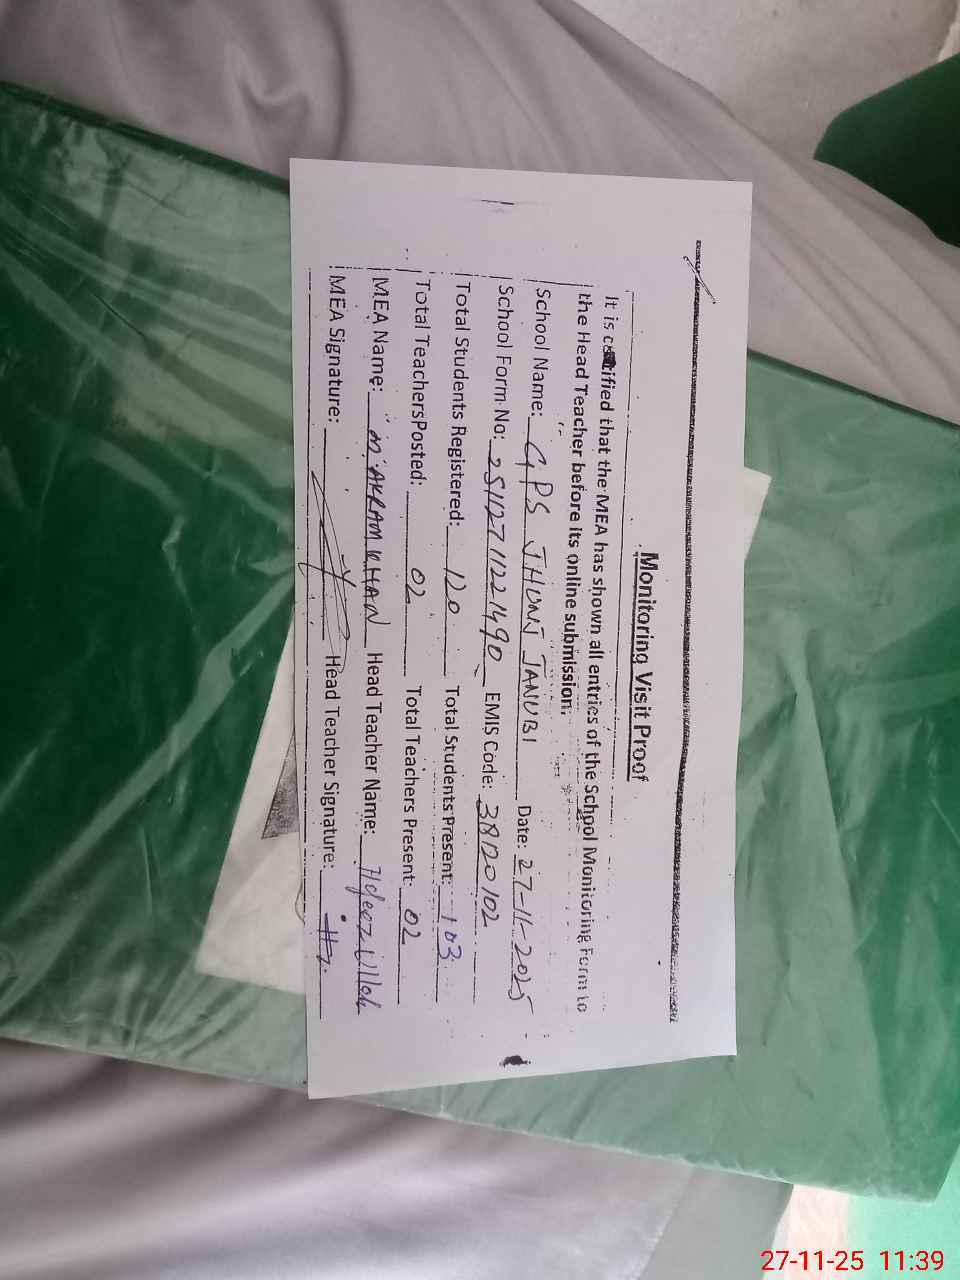 Monitoring Visit Proof
It is certified that the MEA has shown all entries of the School Monitoring Form to
the Head Teacher before its online submission.
School Name: GPS JHUNI JANUBI Date: 27-11-2025
School Form No: 25112711221490 EMIS Code: 38120102
Total Students Registered: 120 Total Students Present: 103
Total TeachersPosted: 02 Total Teachers Present: 02
MEA Name: M. AKRAM KHAN Head Teacher Name: Hafeez Ullah
MEA Signature: Head Teacher Signature:
27-11-25 11:39